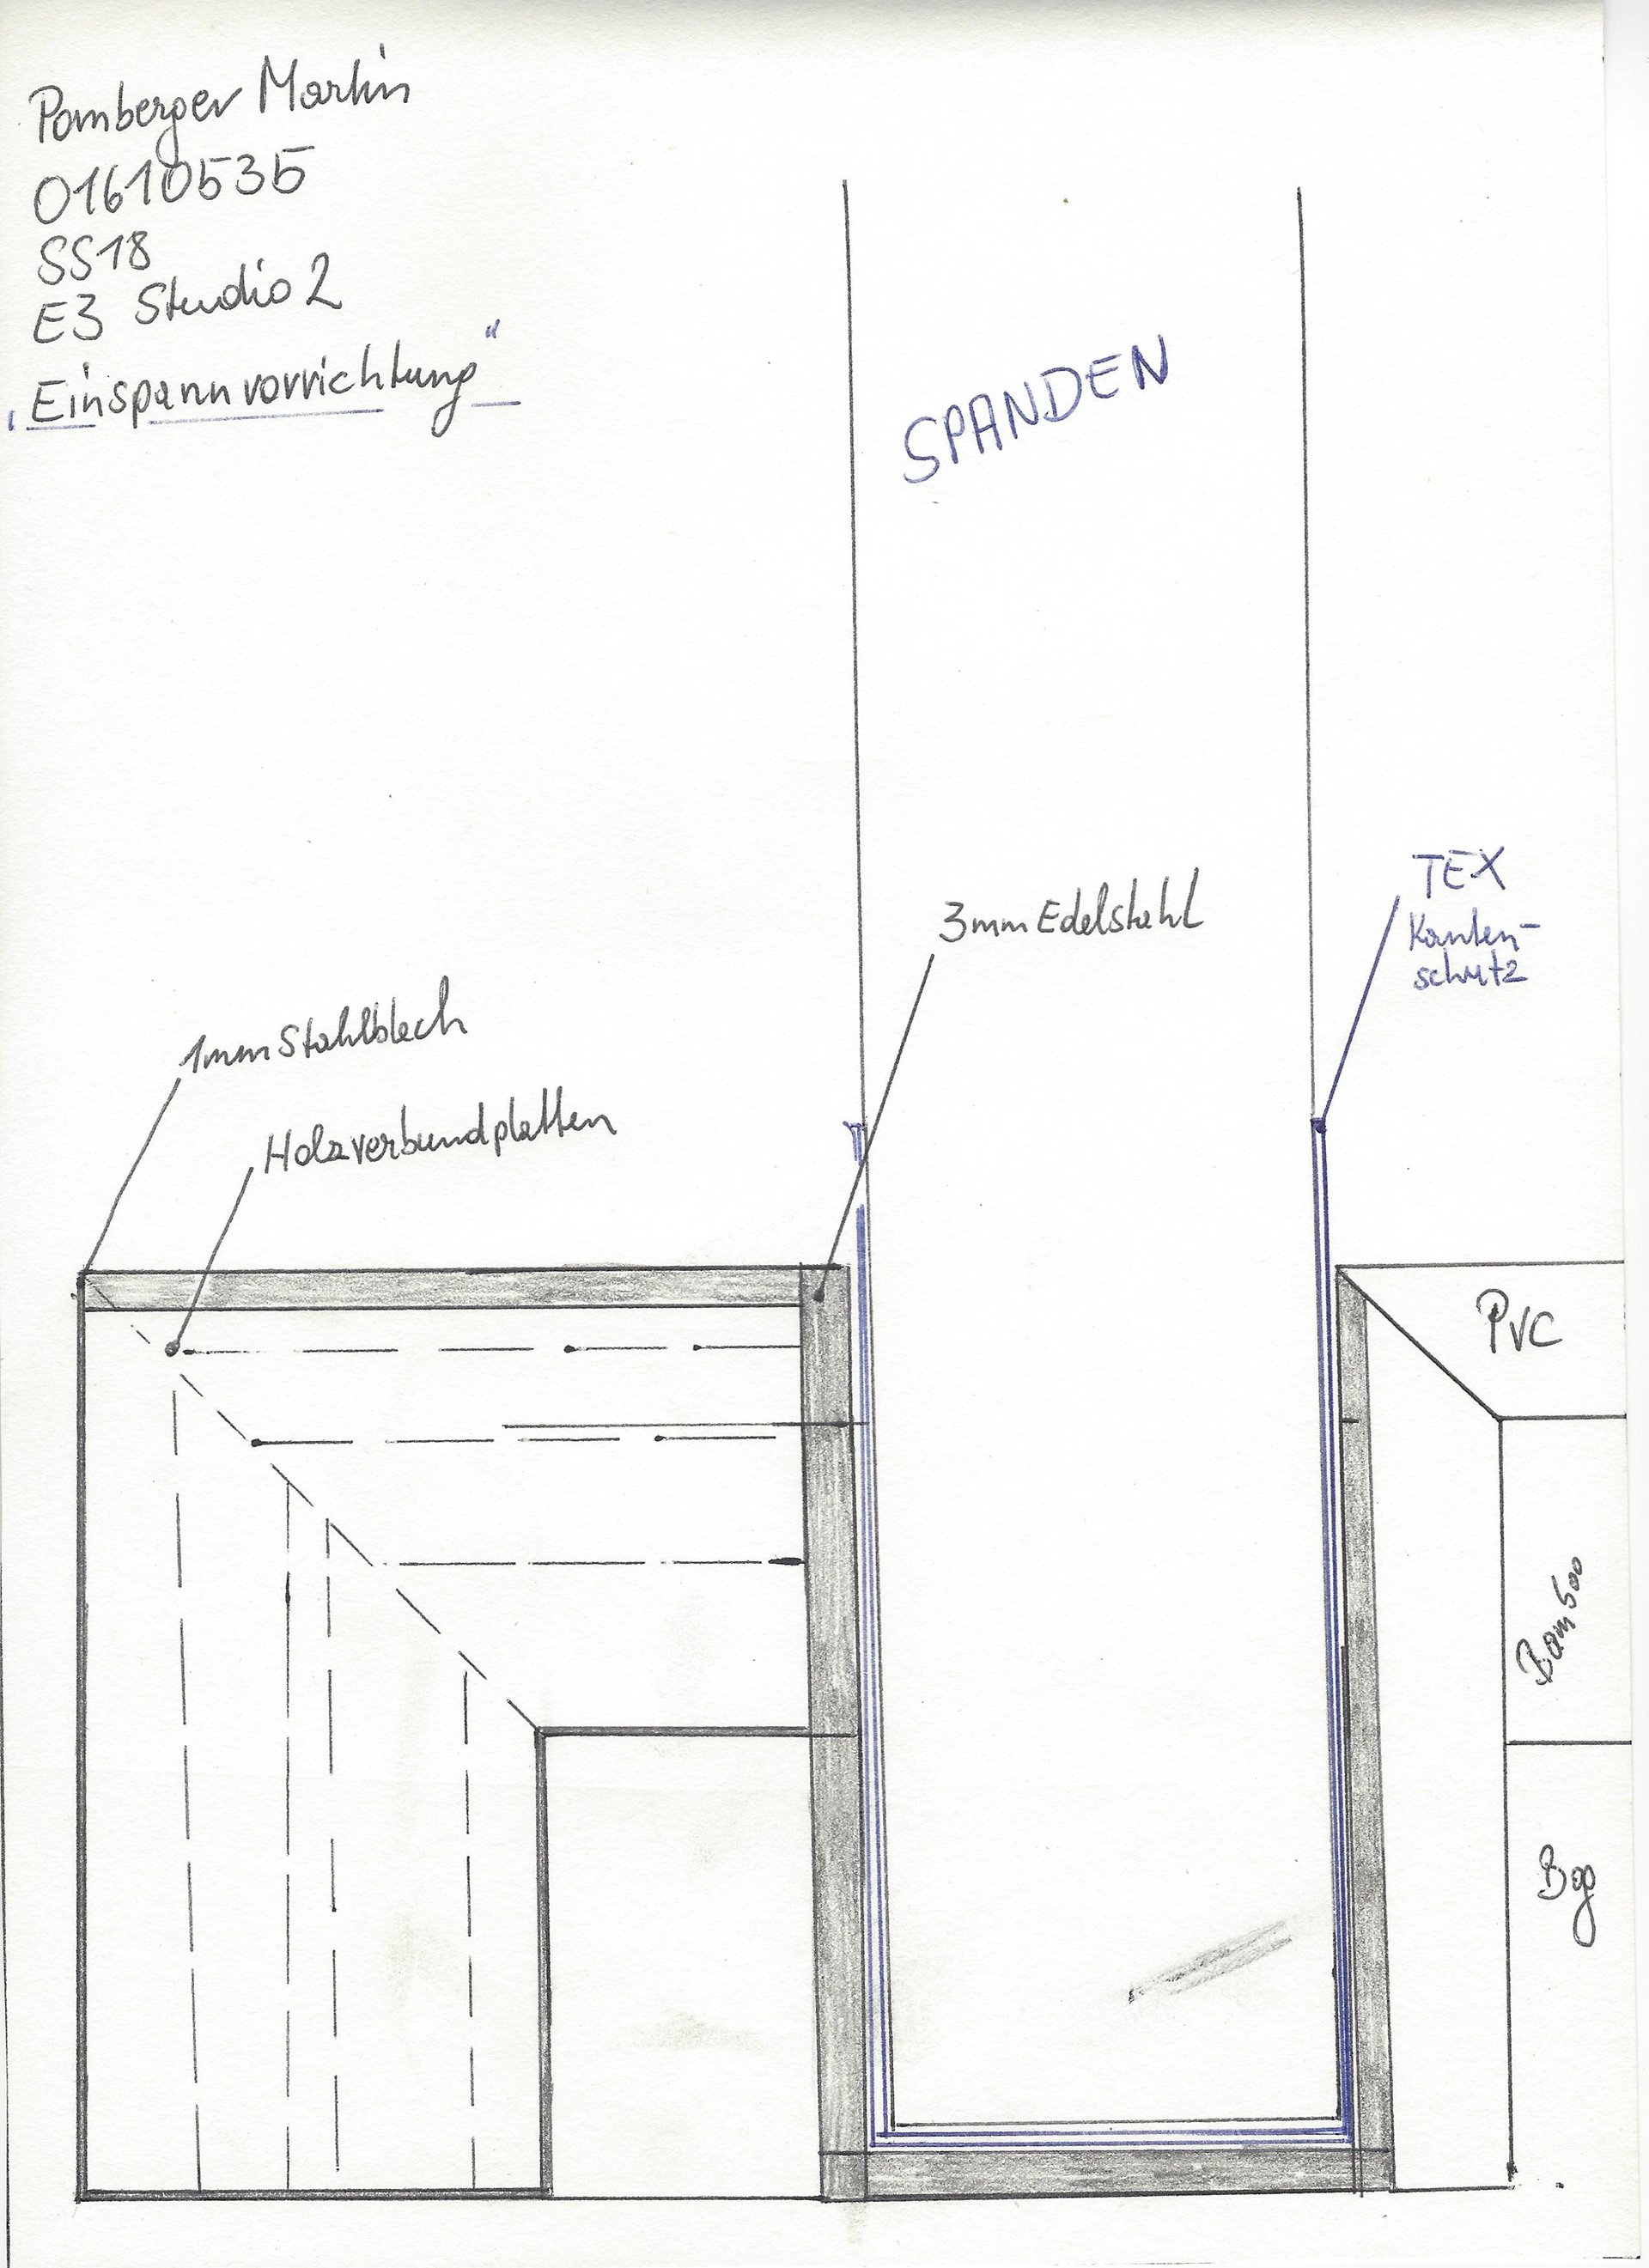 Pamberger Martin
01610535
SS18
E3 Studio 2
„Einspannvorrichtung“
SPANDEN
TEX
Kanten-
schutz
3mm Edelstahl
1mm Stahlblech
Holzverbundplatten
PVC
Bamboo